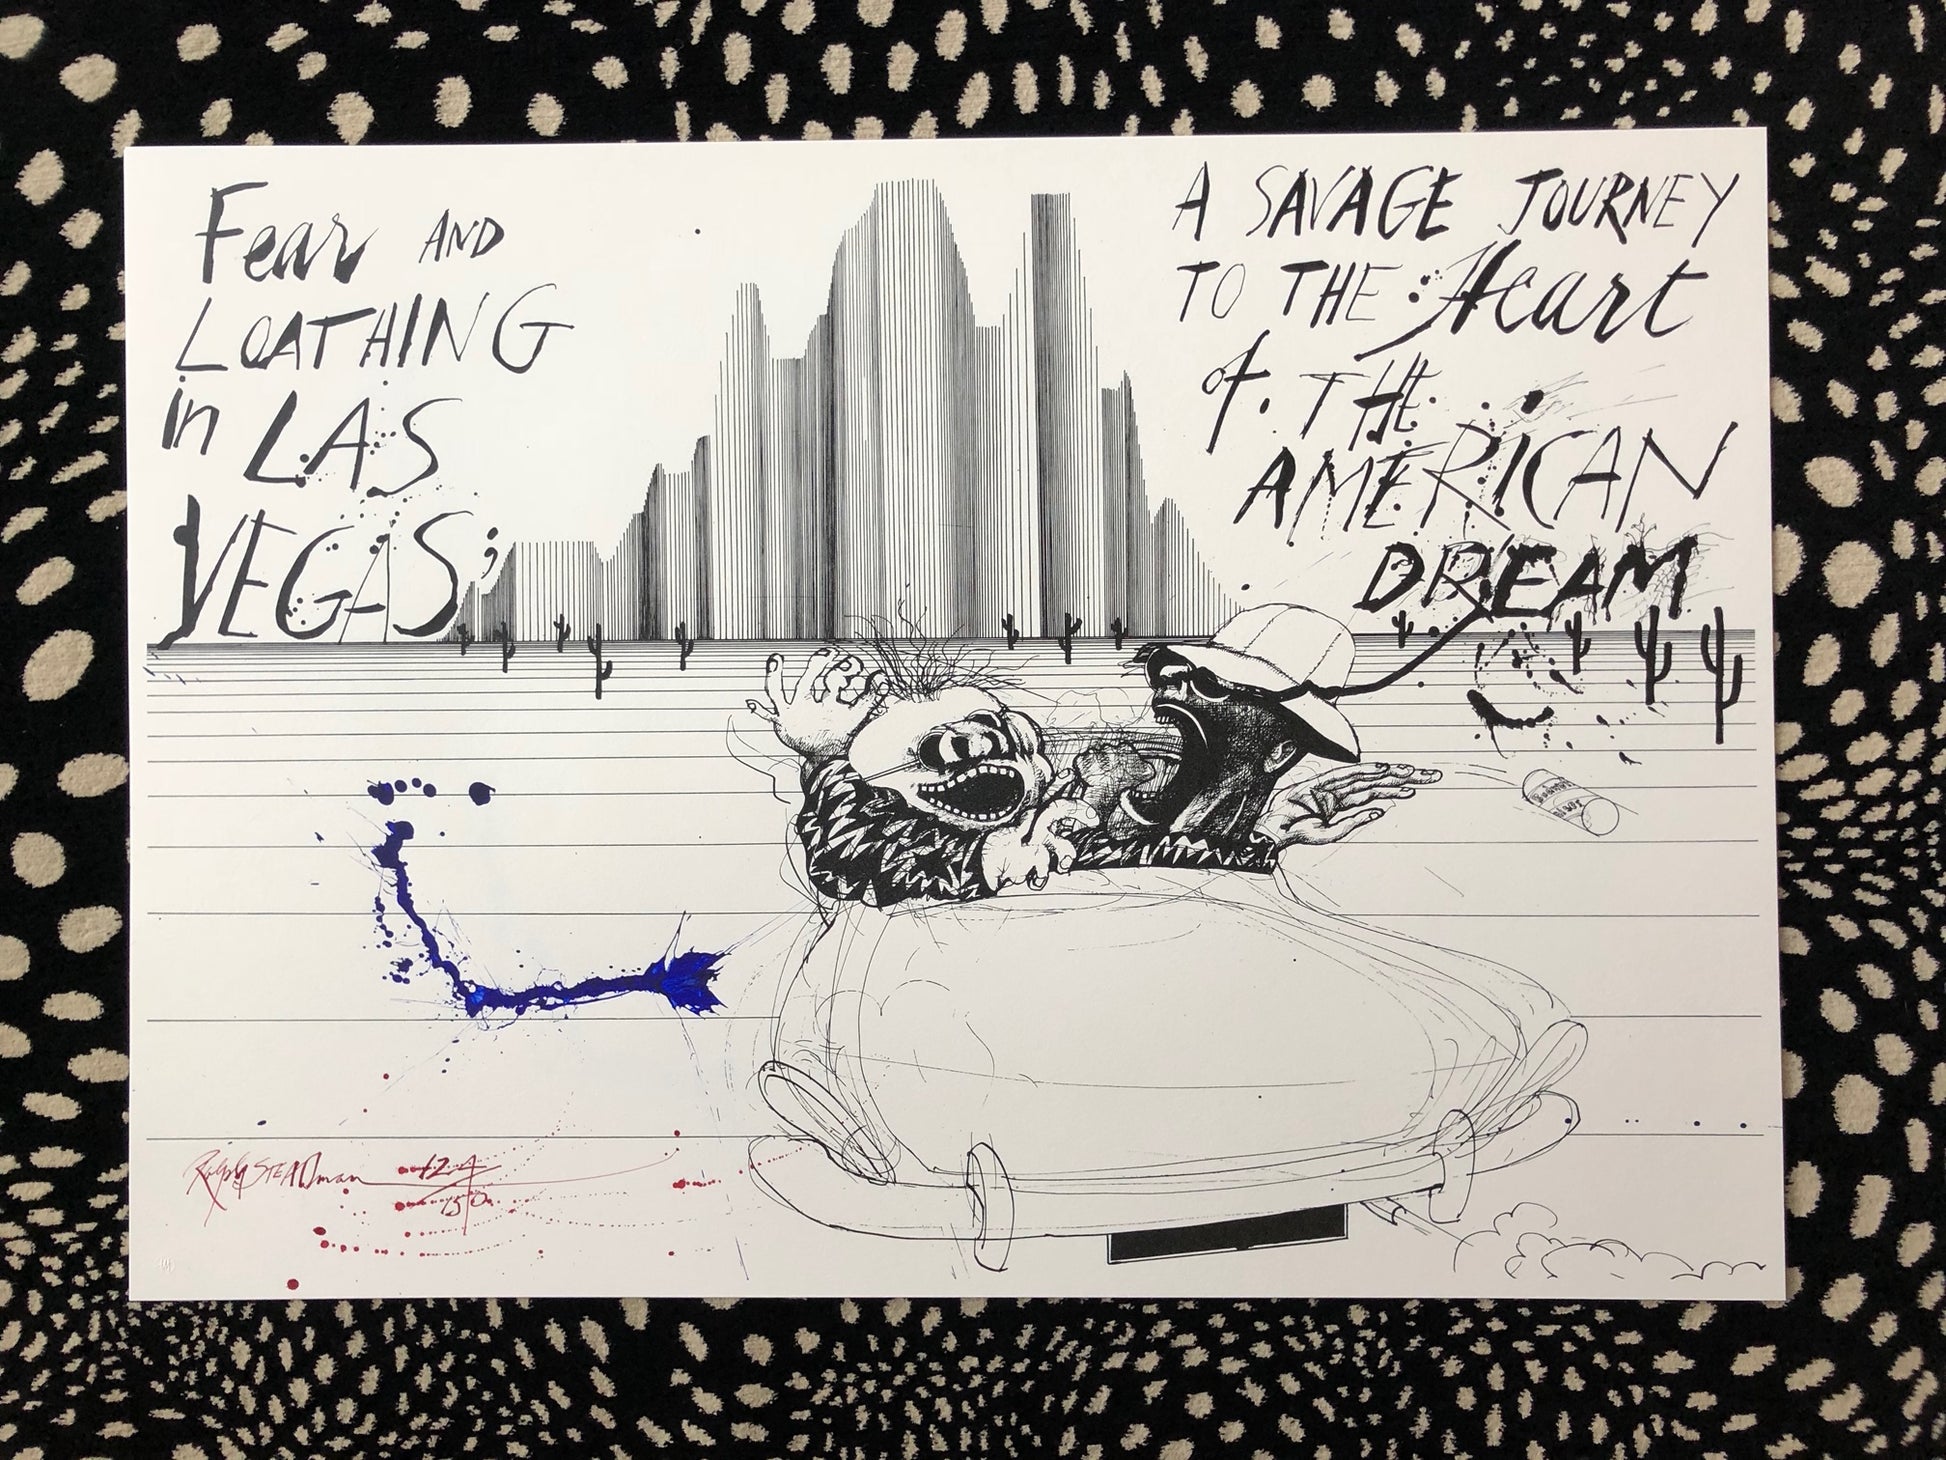 Fear AND
LOATHING
in LAS
VEGAS;
A SAVAGE JOURNEY
TO THE Heart
of. THE
AMERICAN
DREAM
Ralph STEADman 124/150